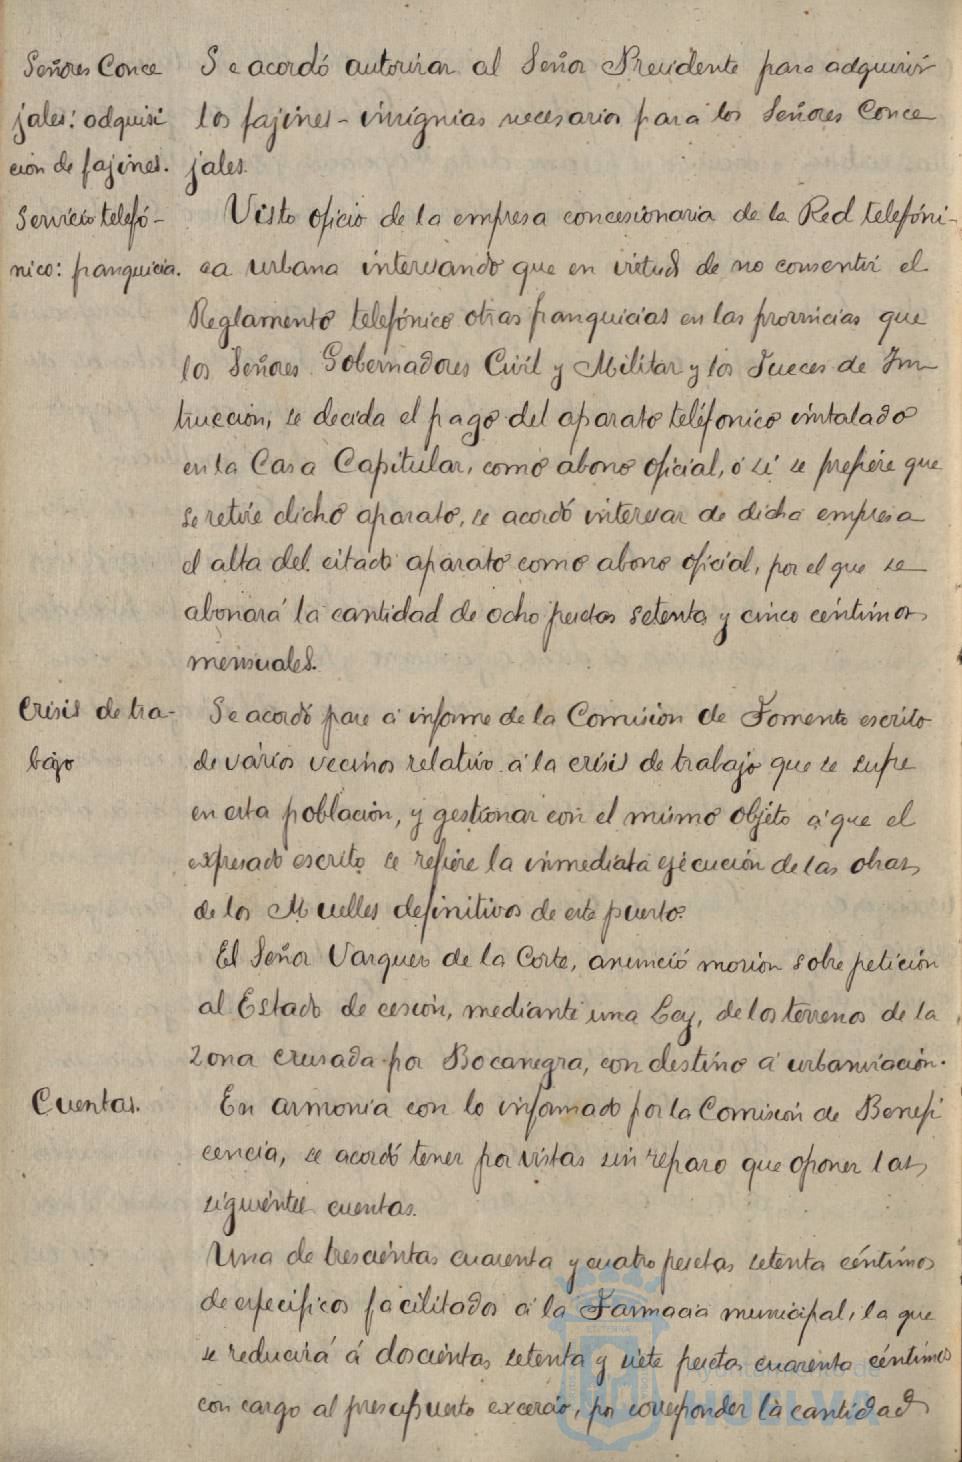 Señores Conce
jales: adquisi
ción de fajines.
Se acordó autorizar al Señor Presidente para adquirir
los fajines-insignias necesarios para los Señores Conce
jales.
Servicio telefó-
nico: franquicia.
Visto oficio de la empresa concesionaria de la Red telefóni-
ca urbana interesando que en virtud de no consentir el
Reglamento telefónico otras franquicias en las provincias que
los Señores Gobernadores Civil y Militar y los Jueces de Ins
trucción, se decida el pago del aparato teléfonico instalado
en la Casa Capitular, como abono oficial, ó si se prefiere que
se retire dicho aparato, se acordó interesar de dicha empresa
el alta del citado aparato como abono oficial, por el que se
abonará la cantidad de ocho pesetas setenta y cinco céntimos
mensuales.
Crisis de tra-
bajo
Se acordó pase á informe de la Comisión de Fomento escrito
de varios vecinos relativo á la crisis de trabajo que se sufre
en esta población, y gestionar con el mismo objeto á que el
expresado escrito se refiere la inmediata ejecución de las obras
de los Muelles definitivos de este puerto.
El Señor Vazquez de la Corte, anunció moción sobre petición
al Estado de cesión, mediante una Ley, de los terrenos de la
zona cruzada por Bocanegra, con destino á urbanización.
Cuentas.
En armonía con lo informado por la Comisión de Benefi
cencia, se acordó tener por vistas sin reparo que oponer las
siguientes cuentas.
Una de trescientas cuarenta y cuatro pesetas setenta céntimos
de especificos facilitados á la Farmacia municipal, la que
se reducirá á doscientas setenta y siete pesetas cuarenta céntimos
con cargo al presupuesto, por corresponder la cantidad
Ayuntamiento de
HUELVA